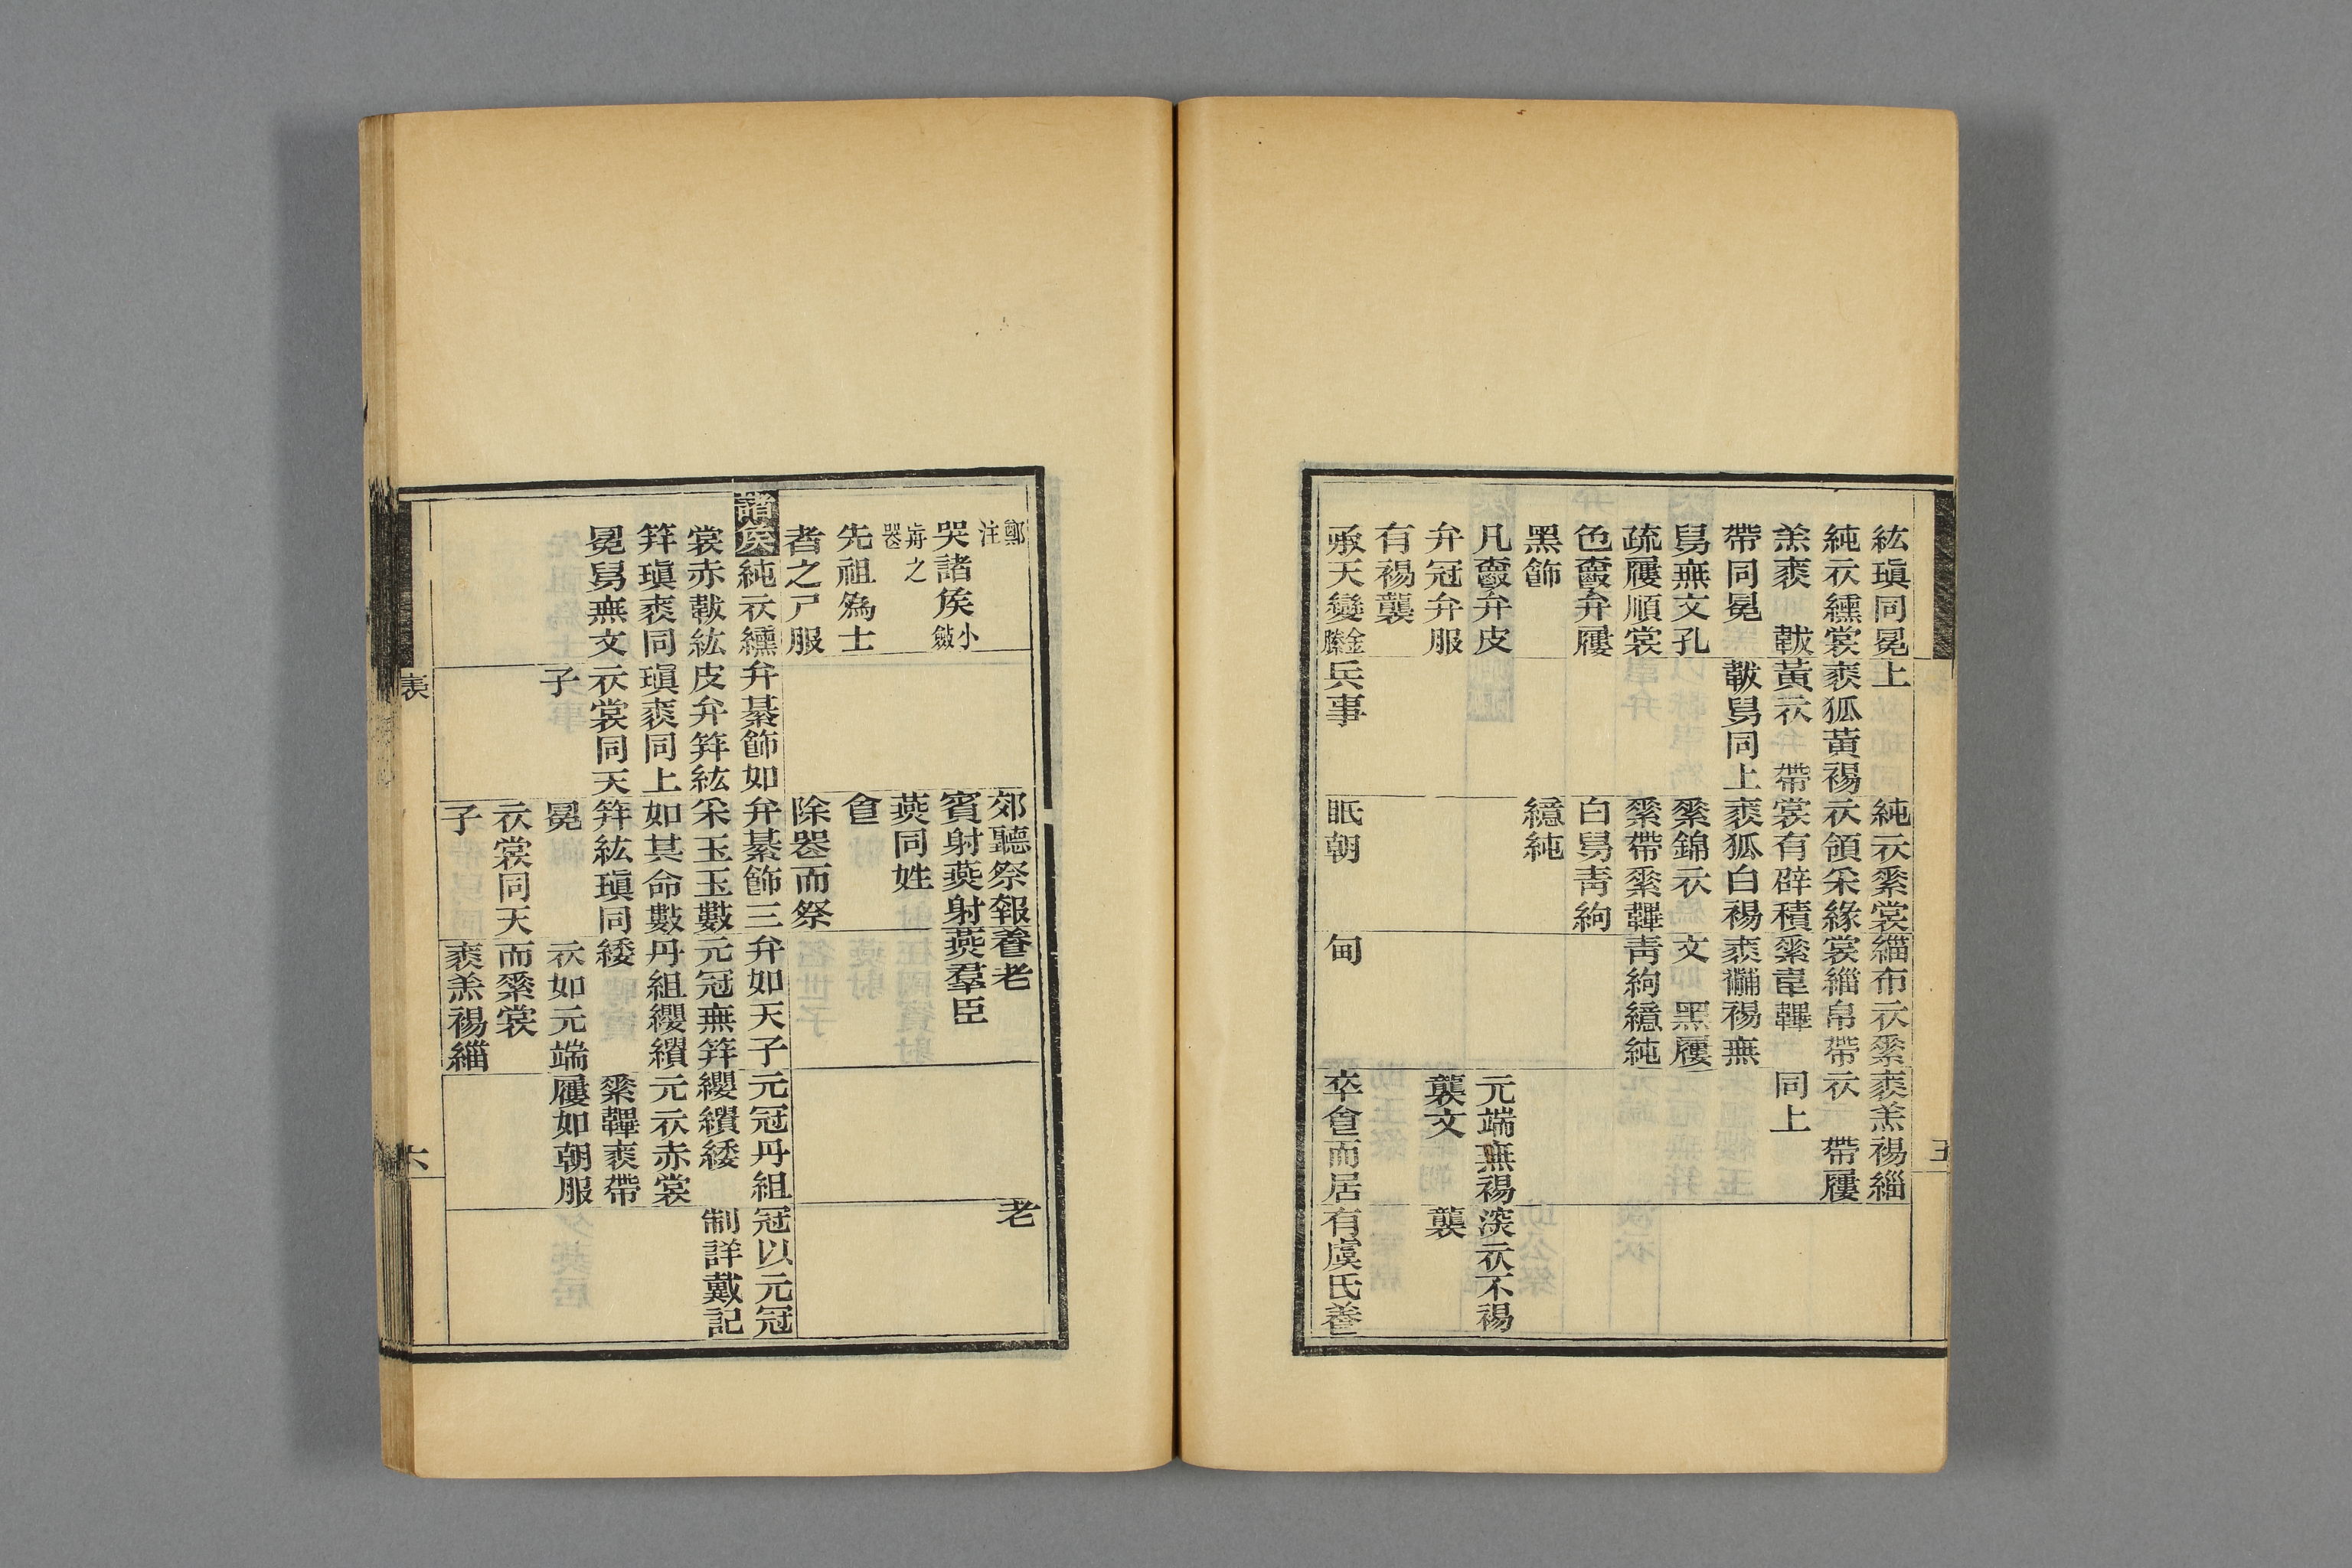 紘瑱同冕
純衣纁裳
羔裘 韍
帶同冕
舄無文孔
疏屨順裳
色爵弁屨
黑飾
凡爵弁皮
弁冠弁服
有裼襲
承天變金縢
上
裘狐黃裼
黃衣 帶
韍舄同上
兵事
純衣素裳
衣領采緣
裳有辟積
裘狐白裼
素錦衣
素帶素韠
白舄青絇
繶純
眡朝
緇布衣素
裳緇帛帶
素韋韠
裘黼裼無
文 黑屨
青絇繶純
甸
裘羔裼緇
衣 帶屨
同上
元端無裼
襲文
卒食而居
深衣不裼
襲
有虞氏養
五
鄭注
哭諸侯小斂
之
先祖爲士
者之尸服
諸侯純衣纁
裳赤韍紘
笄瑱裘同
冕舄無文
弁綦飾如
皮弁笄紘
瑱裘同上
衣裳同天
子
郊聽祭報
賓射燕射
燕同姓
食
除喪而祭
弁綦飾三
采玉玉數
如其命數
笄紘瑱同
冕
衣裳同天
子
養老
燕羣臣
弁如天子
元冠無笄
丹組纓繢
緌
衣如元端
而素裳
裘羔裼緇
元冠丹組
纓繢緌
元衣赤裳
素韠裘帶
屨如朝服
老
冠以元冠
制詳戴記
表
六